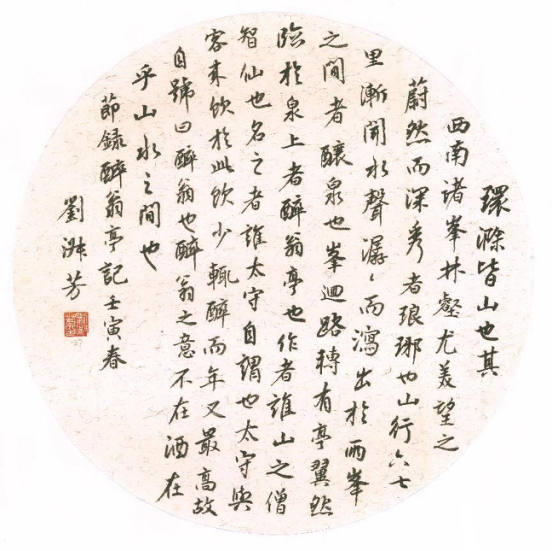 環滁皆山也其
西南諸峯林壑尤美望之
蔚然而深秀者琅琊也山行六七
里漸聞水聲潺〻而瀉出於兩峯
之間者釀泉也峯迴路轉有亭翼然
臨於泉上者醉翁亭也作者誰山之僧
智仙也名之者誰太守自謂也太守與
客來飲於此飲少輒醉而年又最高故
自號曰醉翁也醉翁之意不在酒在
乎山水之間也
節録醉翁亭記壬寅春
劉淑芳